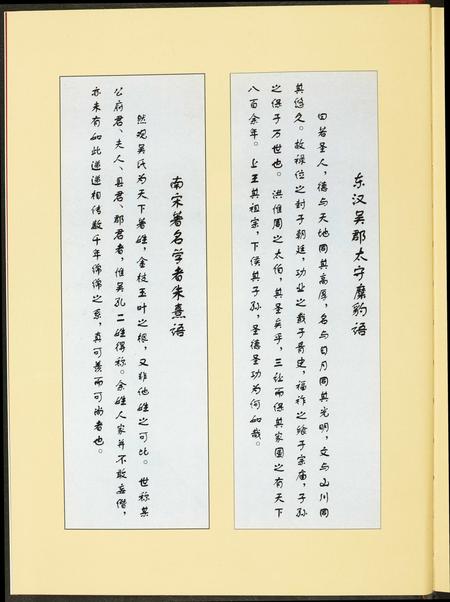 东汉吴郡太守糜豹语
曰若圣人，德与天地同其高厚，名与日月同其光明，文与山川同
其悠久。故禄位之封于朝廷，功业之载于青史，福祚之绘于宗庙，子孙
之保于万世也。洪惟周之太伯，其圣矣乎，三让而保其家国之有天下
八百余年。上王其祖宗，下侯其子孙，圣德圣功为何如哉。
南宋著名学者朱熹语
然观吴氏为天下著姓，金枝玉叶之根，又非他姓之可比。世称某
公府君、夫人、县君、郡君者，惟吴孔二姓得称。余姓人家并不敢妄僭，
亦未有如此递递相传数千年绵绵之系，真可羡而可尚者也。